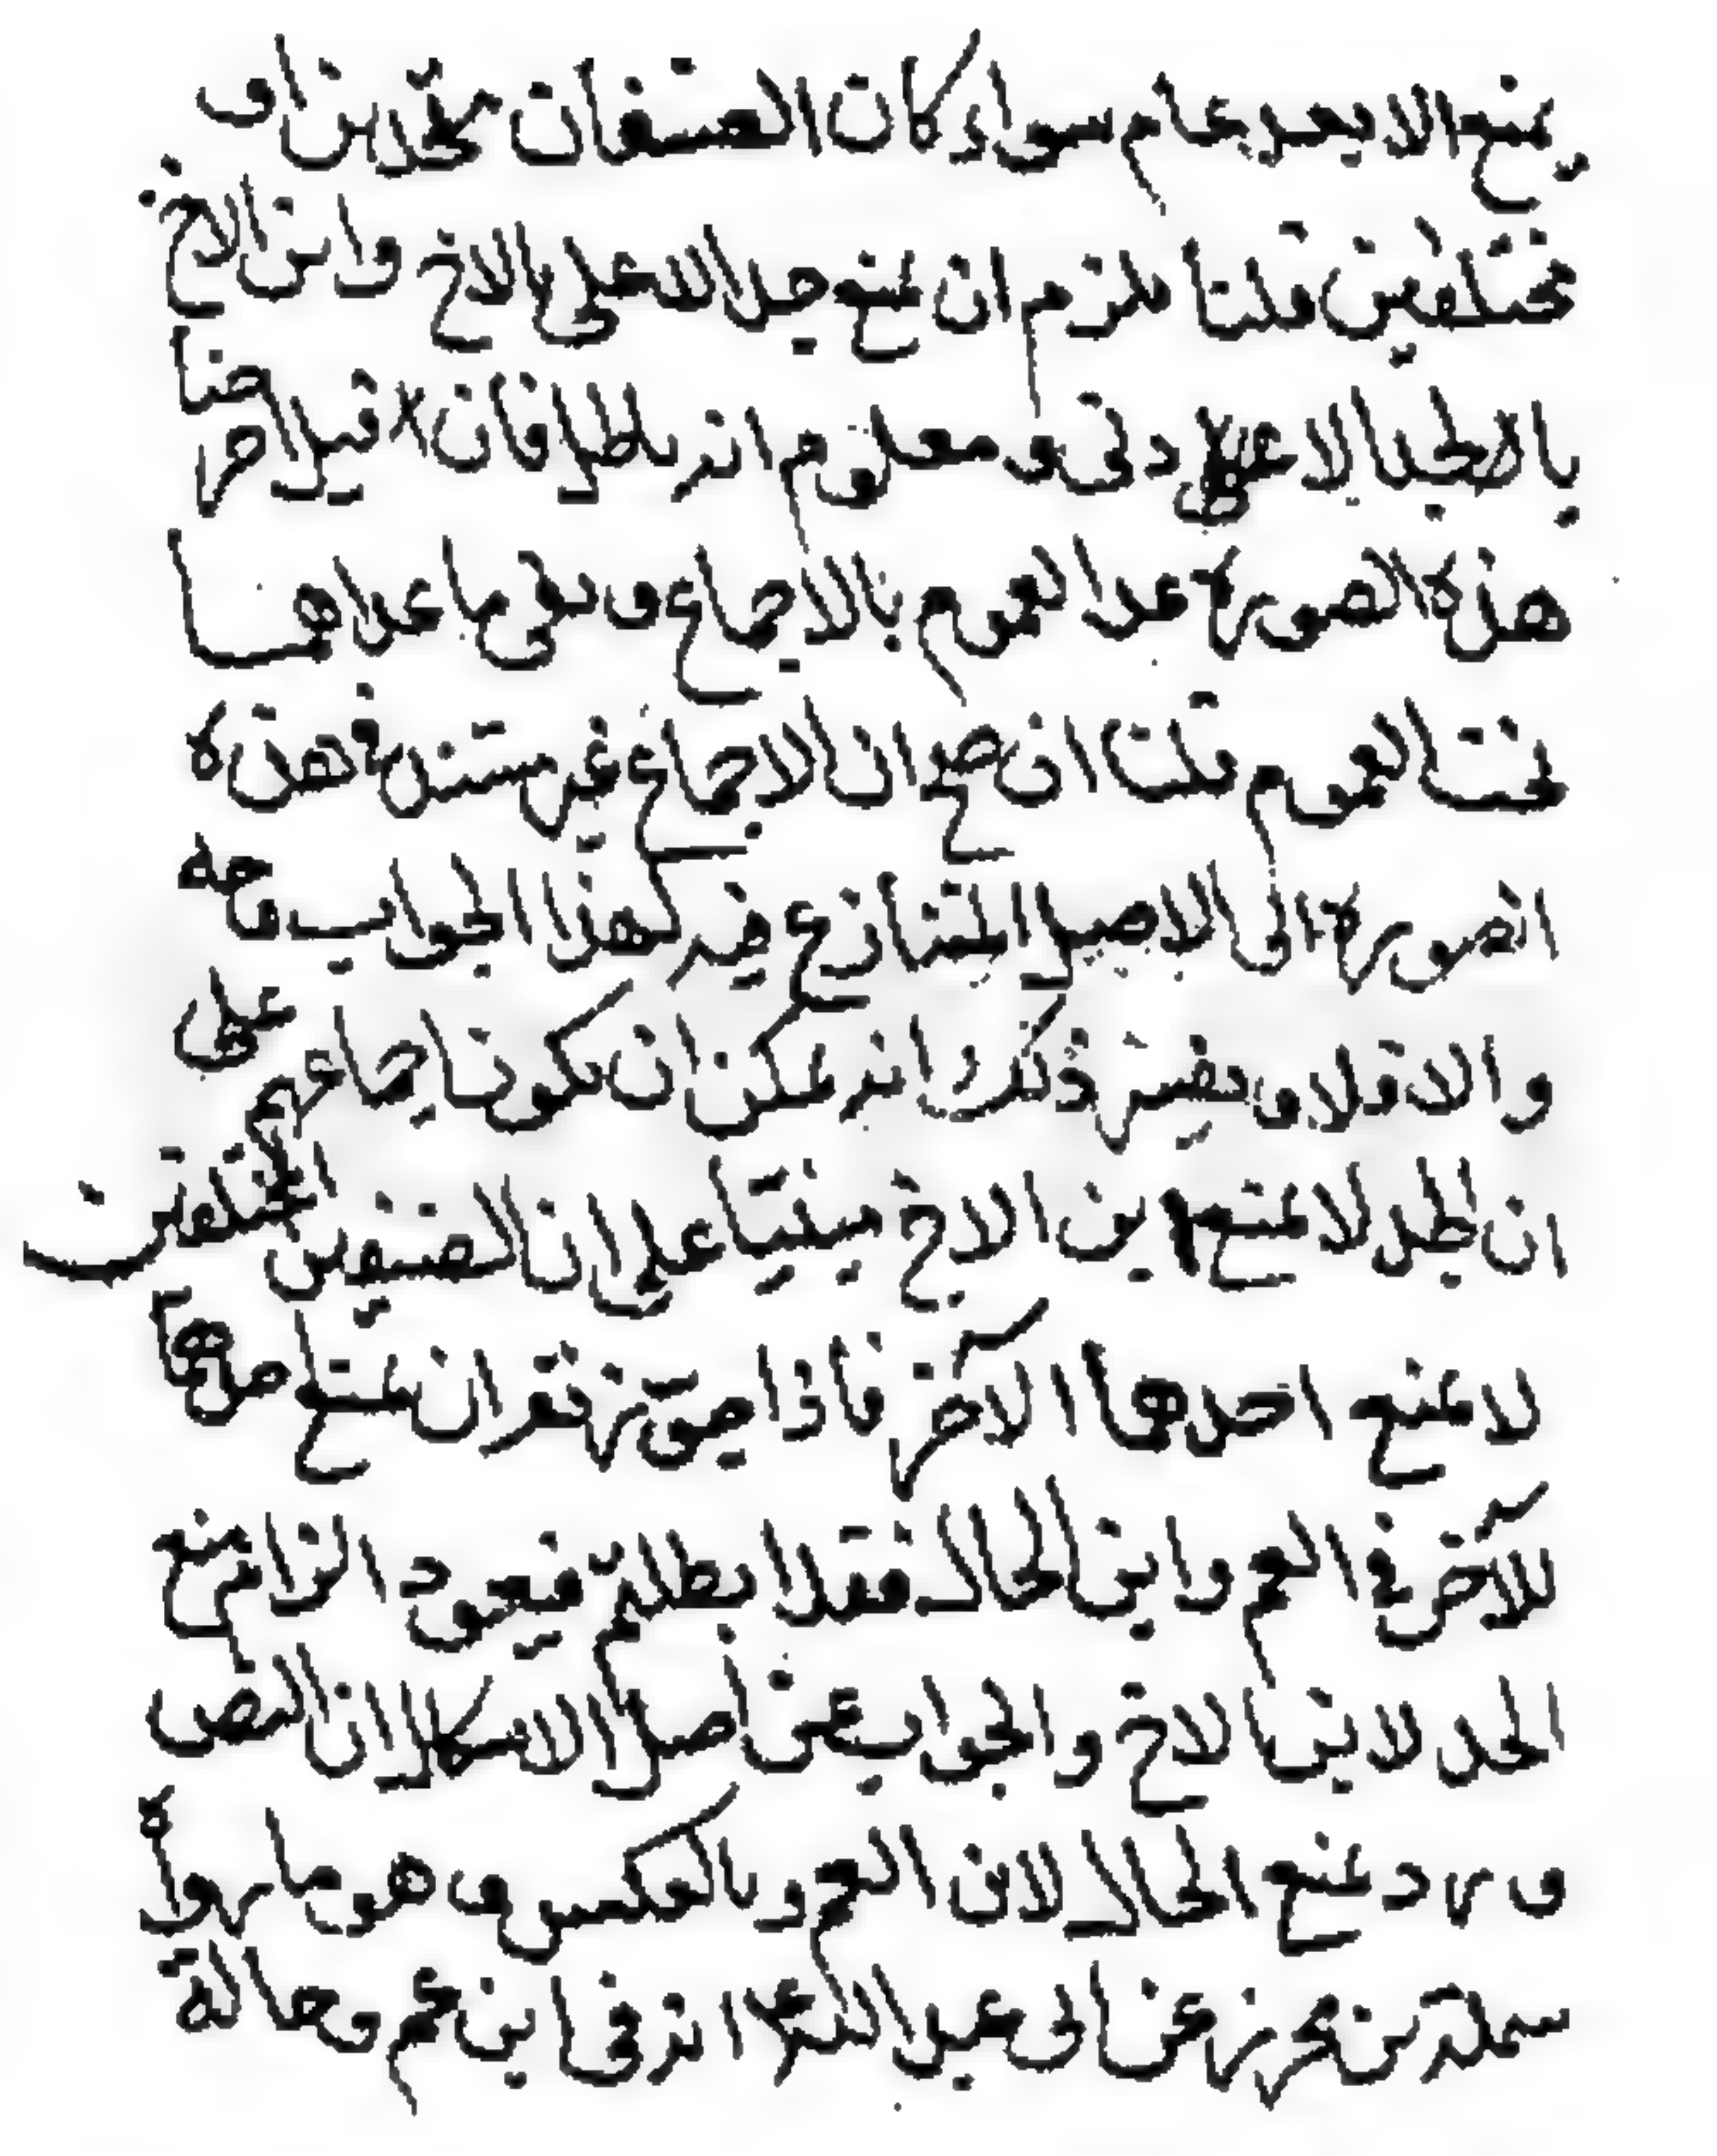 يمنع الابعد عام سواء كان الصنفان متحدين او
مختلفين قلنا يلزم ان يمنع جد الله على بالاخ وابن الاخ
بالجد الاعلى دنى ومعلوم انه بط فان قيل اخرجنا
هذه الصورة عد العموم بالاجماع وبقى ما عداها
تحت العموم قلت ان صح ان الاجماع غير مستن في هذه
الصورة الى الاصل المتنازع فيه كهذا الجواب وجه
والا فلا وتفسير ذلك انه يمكن ان يكون اجماعهم على
ان الجد لا يمنع ابن الاخ مبنيا على ان الصنفين المختلفين
لا يمنع احدهما الاخر فاذا جوزتم ان يمنع احدهما
للآخر في العم وابن الخال فقد ابطلتم فيعود الزامر منع
الجد لابن الاخ والجواب عن اصل الاشكال ان النص
ورد بمنع الخال لابن العم وبالعكس وهو ما رواه
سلمة بن محرز عن ابى عبد الله ع انه في ابن عم وخالة